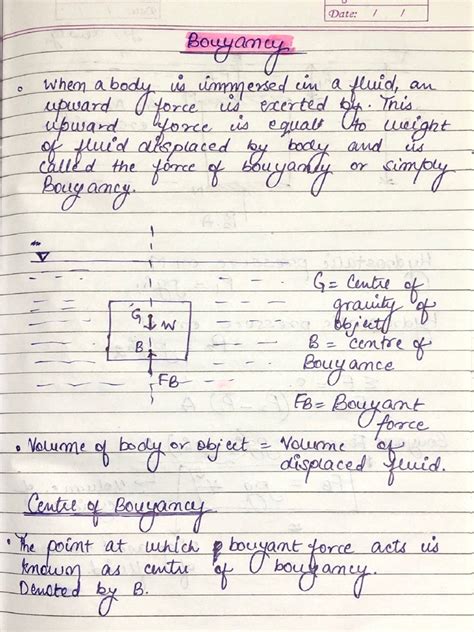 Date: / /
Bouyancy
• When a body is immersed in a fluid, an
upward force is exerted by. This
upward force is equals to weight
of fluid displaced by body and is
called the force of bouyancy or simply
Bouyancy.
G = Centre of
gravity of
object
B = Centre of
Bouyance
FB = Bouyant
force
G
W
B
FB
• Volume of body or object = Volume of
displaced fluid.
Centre of Bouyancy
• The point at which bouyant force acts is
known as centre of bouyancy.
Denoted by B.